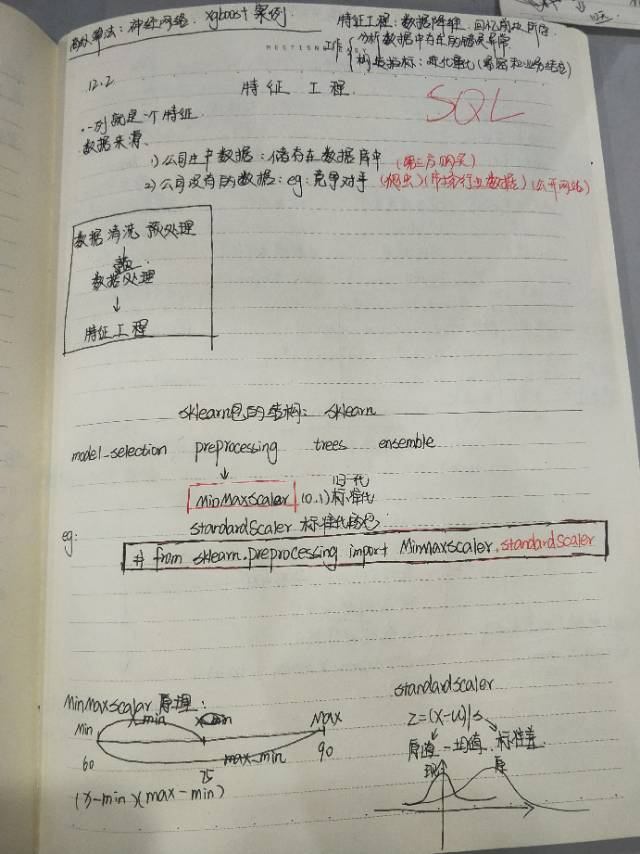 算法：神经网络、xgboost 案例.
特征工程：数据降维、
分析数据中存在的错误异常
12.2
特征 工程.
SQL
·一列就是一个特征
数据来源
1) 公司库中数据：储存在数据库中 (第三方购买)
2) 公司没有的数据：eg: 竞争对手 (爬虫)(市场行业数据)(公开网站)
数据清洗 预处理
↓
数据处理
↓
特征工程
sklearn包的结构： sklearn
model_selection preprocessing trees ensemble
↓
归一化
MinMaxScaler (0.1)标准化
standardScaler 标准化
eg:
# from sklearn.preprocessing import MinmaxScaler.standardScaler
MinMaxscalar 原理：
standardScaler
x-min
Min Max
z=(x-u)/s
60 75 90
max-min
原值 - 均值 标准差
现 原
(x-min)(max-min)